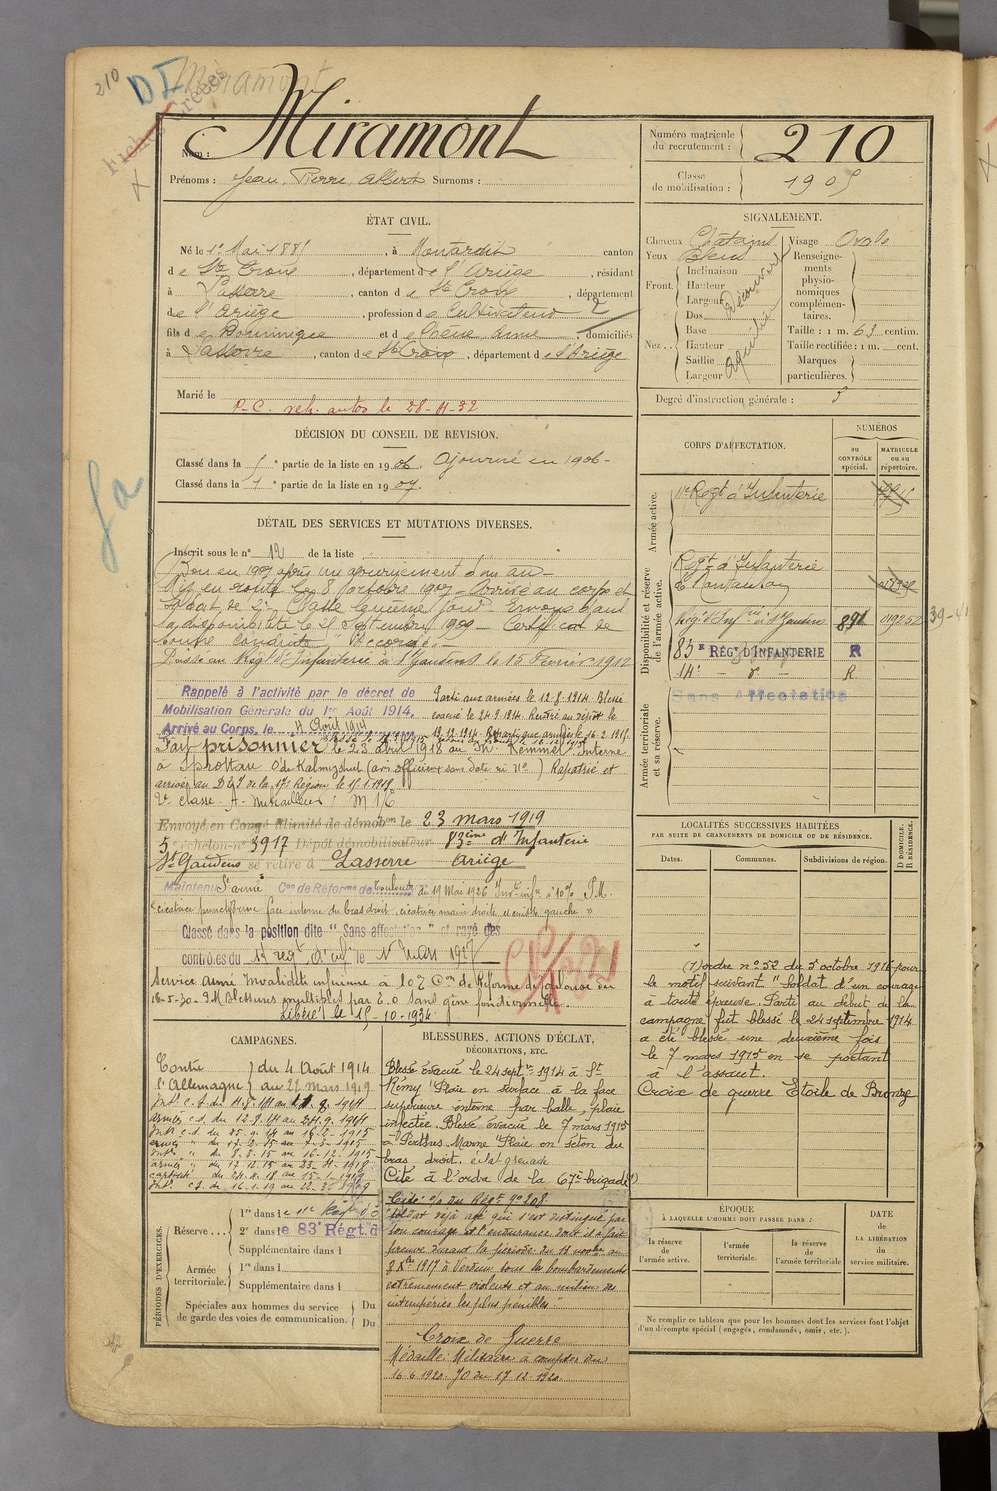 210
D I
Miramont
Nom : Miramont
Prénoms : Jean, Pierre, Albert Surnoms :
Numéro matricule
du recrutement : 210
Classe
de mobilisation : 1905
ÉTAT CIVIL.
Né le 1er Mai 1885, à Montardit canton
de Ste Croix, département de l'Ariège, résidant
à Lasserre, canton de Ste Croix, département
de l'Ariège, profession de Cultivateur 2
fils de Dominique et de, domiciliés
à Lasserre, canton de Ste Croix, département de l'Ariège
Marié le
P.C. veh. autos le 28-4-32
SIGNALEMENT.
Cheveux Châtains Visage Ovale
Yeux Bleus
Front. Inclinaison Découvert
Hauteur
Largeur
Nez.. Dos Aquilin
Base
Hauteur
Saillie
Largeur
Renseigne-
ments
physio-
nomiques
complémen-
taires.
Taille : 1 m. 63 centim.
Taille rectifiée : 1 m. cent.
Marques
particulières.
Degré d'instruction générale : 3
DÉCISION DU CONSEIL DE REVISION.
Classé dans la 5e partie de la liste en 1906. Ajourné en 1906-
Classé dans la 1e partie de la liste en 1907.
DÉTAIL DES SERVICES ET MUTATIONS DIVERSES.
Inscrit sous le n° 12 de la liste
Bon en 1907 après un ajournement d'un an-
Mis en route le 8 octobre 1907- Arrivé au corps et
Soldat de 2e Classe le même jour- Envoyé dans
la disponibilité le 25 Septembre 1909- Certificat de
bonne conduite "Accordé".
Passé au Régt d'Infanterie de St Gaudens le 15 Février 1912
Rappelé à l'activité par le décret de
Mobilisation Générale du 1er Août 1914.
Arrivé au Corps, le 4 Août 1914
Parti aux armées le 12.8.1914. Blessé
évacué le 24.9.1914. Rentré au dépôt le
Reparti aux armées le 16.2.1915.
Fait prisonnier le 23 avril 1918 au Mt Kemmel. Interné
à Sprottau (avis officieux sans date ni No) Rapatrié et
arrivé au D.I. de la 17e Région le 15.1.1919
2e classe
Envoyé en Congé illimité de démobon le 23 mars 1919
5e échelon n° 3917 Dépôt démobilisateur 83ème d'Infanterie
St Gaudens se retire à Lasserre Ariège
Maintenu St armé Con de Réforme de Toulouse du 19 Mai 1926 Invté infre à 10% P.M.
"cicatrice punctiforme face interne du bras droit, cicatrice main droite et cuisse gauche"
Classé dans la position dite "Sans affectation" et rayé des
contrôles du 14e regt d'inf le 1er Mars 1927
Service armé Invalidité inférieure à 10% Con de Réforme de Toulouse du
16-5-30- P.M. Blessures multiples par E.O sans gêne fonctionnelle.
Libéré le 15-10-1934.
CORPS D'AFFECTATION.
NUMÉROS
au
CONTRÔLE
spécial.
MATRICULE
ou au
répertoire.
Armée active.
11e Régt d'Infanterie
Disponibilité et réserve
de l'armée active.
Régt d'Infanterie
de Montauban
Régt d'Infrie de St Gaudens 891 019252
39-41
83e RÉGt D'INFANTERIE R
14e - d° - R.
Sans affectation
Armée territoriale
et sa réserve.
LOCALITÉS SUCCESSIVES HABITÉES
PAR SUITE DE CHANGEMENTS DE DOMICILE OU DE RÉSIDENCE.
Dates. Communes. Subdivisions de région.
D DOMICILE.
R RÉSIDENCE.
(1) ordre n° 52 du 5 octobre 1916 pour
le motif suivant "Soldat d'un courage
à toute épreuve. Parti au début de la
campagne fut blessé le 24 septembre 1914
a été blessé une deuxième fois
le 7 mars 1915 en se portant
à l'assaut.
Croix de guerre Etoile de Bronze
CAMPAGNES.
Contre du 4 Août 1914
l'Allemagne au 22 Mars 1919
Intr c.d. du 4.8.14 au 11.8.1914
armées c.d. du 12.8.14 au 24.9.1914
Intr c.d. du 25.9.14 au 16.2.1915
armées " du 17.2.15 au 7.3.1915
Intr " du 8.3.15 au 16.12.1915
armées " du 17.12.15 au 23.4.1918
captivité du 24.4.18 au 15.1.1919
Intr cd. du 16.1.19 au 22.3.1919
BLESSURES, ACTIONS D'ÉCLAT,
DÉCORATIONS, ETC.
Blessé évacué le 24 septre 1914 à St
Rémy "Plaie en surface à la face
supérieure interne par balle, plaie
infectée. Blessé évacué le 7 mars 1915
à Perthus Marne "Plaie en séton du
bras droit. éclat grenade
Cité à l'ordre de la 67e brigade (1)
Cité o/o du Régt n° 208
"Soldat déjà agé qui s'est distingué par
son courage et l'endurance dont il a fait
preuve durant la période du 12 novbre au
9 Xbre 1917 à Verdun sous les bombardements
extrêmement violents et au milieu des
intempéries les plus pénibles"
Croix de Guerre
Médaille Militaire à compter du
16-6-1920. JO du 17.12.1920.
PÉRIODES D'EXERCICES.
Réserve... 1re dans le 11e Régt d'
2e dans le 83e Régt. d
Supplémentaire dans l
Armée
territoriale. 1re dans l
Supplémentaire dans l
Spéciales aux hommes du service
de garde des voies de communication. Du
Du
ÉPOQUE
À LAQUELLE L'HOMME DOIT PASSER DANS :
la réserve
de
l'armée active.
l'armée
territoriale.
la réserve
de
l'armée territoriale
DATE
de
LA LIBÉRATION
du
service militaire.
Ne remplir ce tableau que pour les hommes dont les services font l'objet
d'un décompte spécial (engagés, condamnés, omis, etc.).